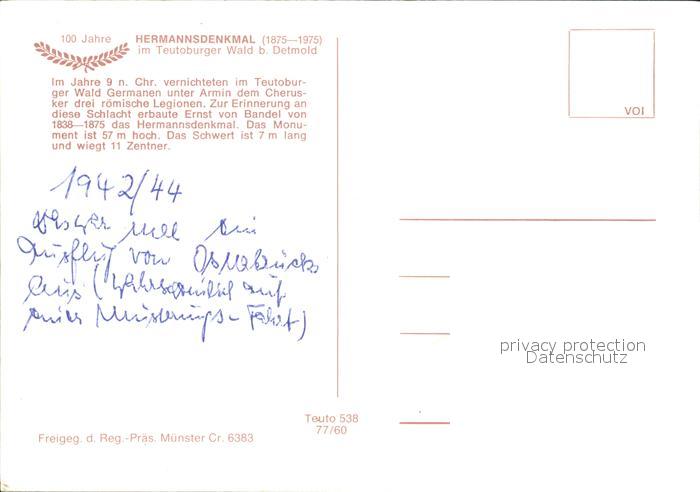 100 Jahre HERMANNSDENKMAL (1875—1975)
im Teutoburger Wald b. Detmold
Im Jahre 9 n. Chr. vernichteten im Teutobur-
ger Wald Germanen unter Armin dem Cherus-
ker drei römische Legionen. Zur Erinnerung an
diese Schlacht erbaute Ernst von Bandel von
1838—1875 das Hermannsdenkmal. Das Monu-
ment ist 57 m hoch. Das Schwert ist 7 m lang
und wiegt 11 Zentner.
1942/44
mal ein
Ausflug von Osnabrück
aus (wahrscheinlich auf
einer Musterungs-Fahrt)
Freigeg. d. Reg.-Präs. Münster Cr. 6383
Teuto 538
77/60
VOI
privacy protection
Datenschutz